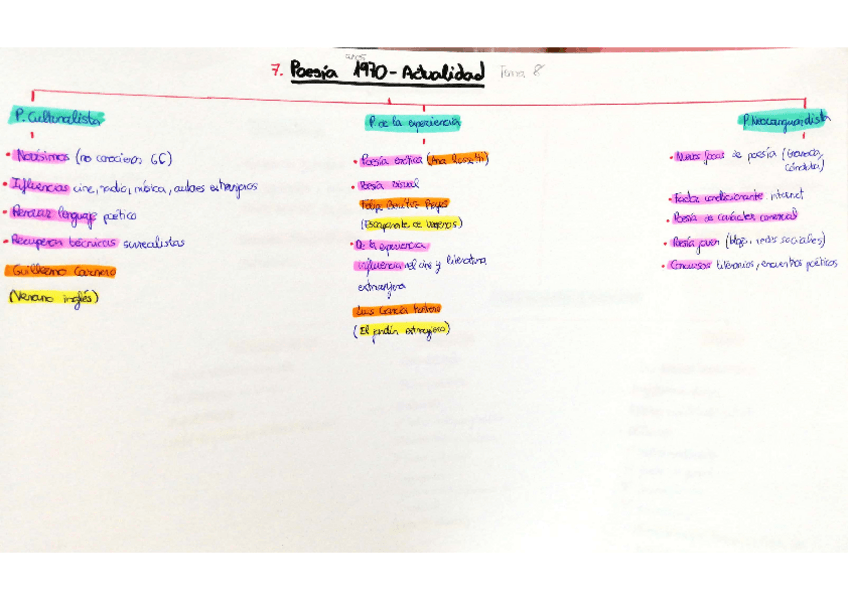 años
7. Poesía 1970-Actualidad Tema 8
P. Culturalista
• Novísimos (no conocieron GC)
• Influencias cine, radio, música, autores extranjeros
• Renovar lenguaje poético
• Recuperan técnicas surrealistas
Guillermo Carnero
(Verano inglés)
P. de la experiencia
• Poesía erótica (Ana Rossetti)
• Poesía visual
Felipe Benítez Reyes
(Escaparate de venenos)
• De la experiencia
influencia del cine y literatura
extranjera
Luis García Montero
(El jardín extranjero)
P. Neovanguardista
• Nuevos focos de poesía (Granada,
Córdoba)
• Factor condicionante internet
• Poesía de carácter comercial
• Poesía joven (blogs, redes sociales)
• Concursos literarios, encuentros poéticos